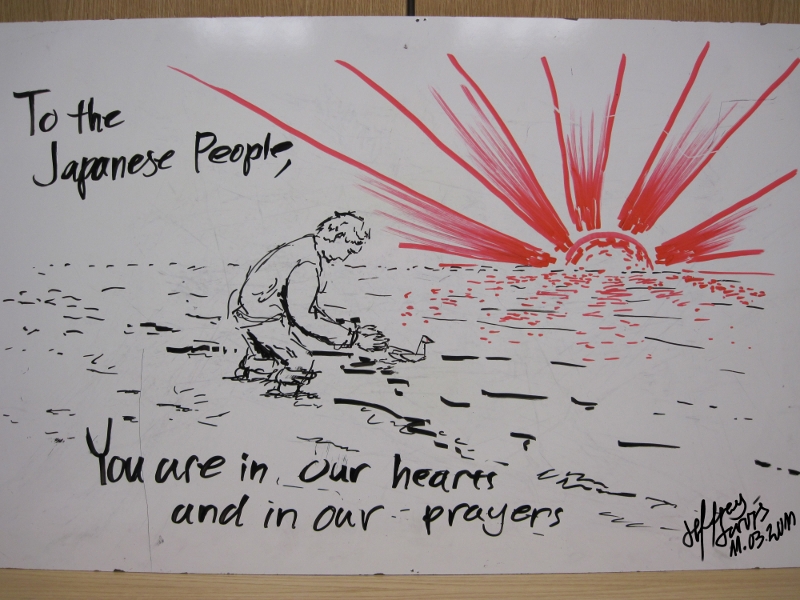 To the
Japanese People,
You are in our hearts
and in our prayers
Jeffrey
11.03.2011